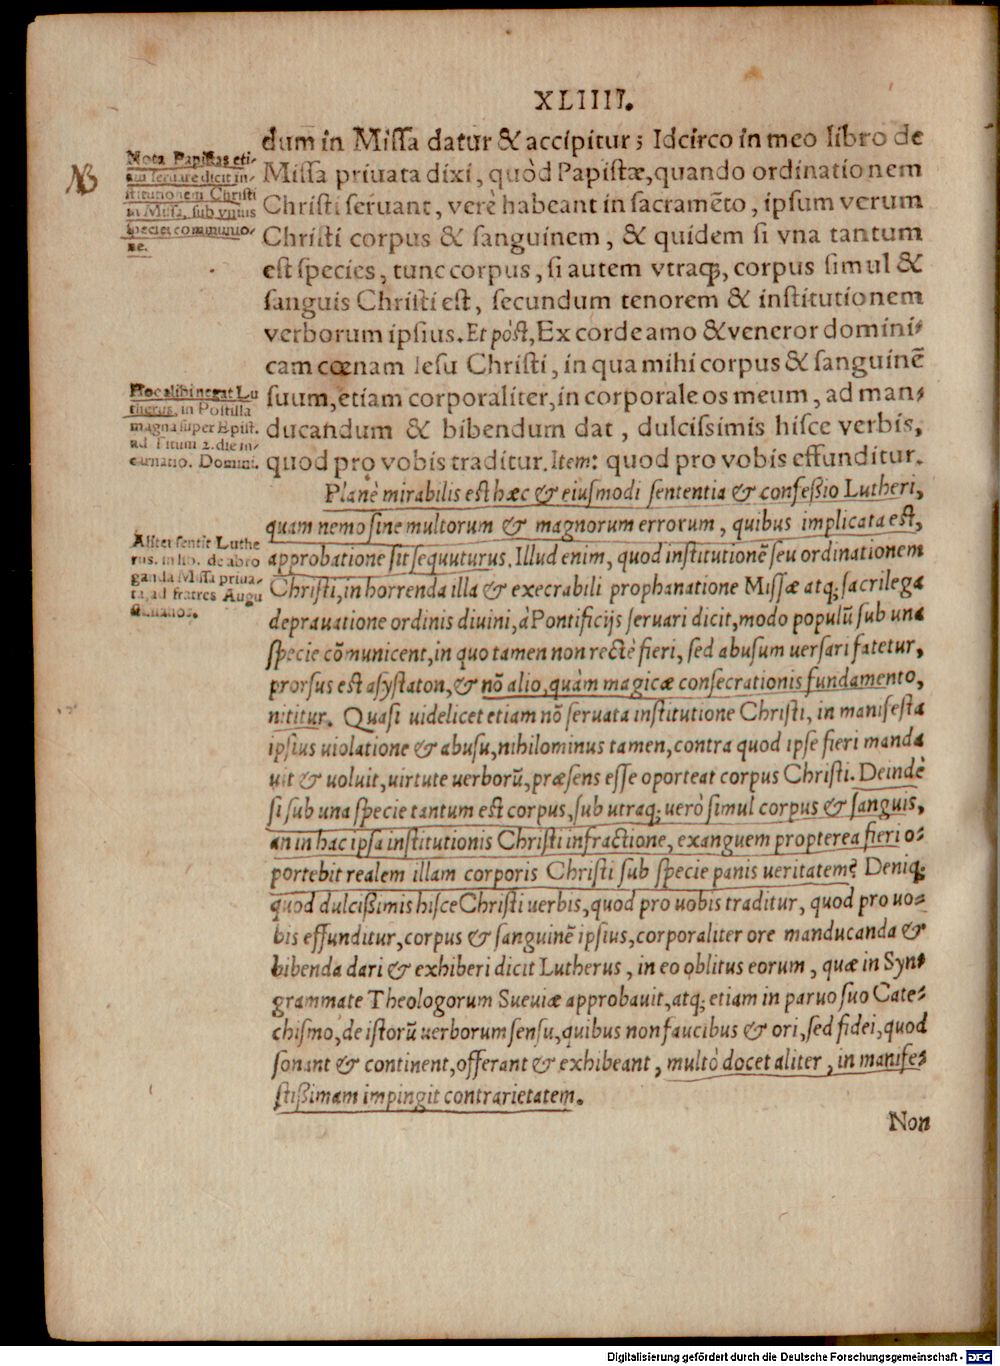 XLIIII.
dum in Miſſa datur & accipitur; Idcirco in meo libro de
Miſſa priuata dixi, quòd Papiſtæ, quando ordinationem
Chriſti ſeruant, verè habeant in ſacramẽto, ipſum verum
Chriſti corpus & ſanguinem, & quidem ſi vna tantum
eſt ſpecies, tunc corpus, ſi autem vtraq;, corpus ſimul &
ſanguis Chriſti eſt, ſecundum tenorem & inſtitutionem
verborum ipſius. Et pòſt, Ex corde amo & veneror domini-
cam cœnam Ieſu Chriſti, in qua mihi corpus & ſanguinẽ
ſuum, etiam corporaliter, in corporale os meum, ad man-
ducandum & bibendum dat, dulciſsimis hiſce verbis,
quod pro vobis traditur. Item: quod pro vobis effunditur.
Planè mirabilis eſt hæc & eiuſmodi ſententia & confeßio Lutheri,
quam nemo ſine multorum & magnorum errorum, quibus implicata eſt,
approbatione ſit ſequuturus. Illud enim, quod inſtitutionẽ ſeu ordinationem
Chriſti, in horrenda illa & execrabili prophanatione Miſſæ atq; ſacrilega
deprauatione ordinis diuini, à Pontificijs ſeruari dicit, modo populũ ſub una
ſpecie cõmunicent, in quo tamen non rectè fieri, ſed abuſum uerſari fatetur,
prorſus eſt aſyſtaton, & nõ alio, quàm magicæ conſecrationis fundamento,
nititur. Quaſi uidelicet etiam nõ ſeruata inſtitutione Chriſti, in manifeſta
ipſius uiolatione & abuſu, nihilominus tamen, contra quod ipſe fieri manda
uit & uoluit, uirtute uerborũ, præſens eſſe oporteat corpus Chriſti. Deindè
ſi ſub una ſpecie tantum eſt corpus, ſub utraq; uerò ſimul corpus & ſanguis,
an in hac ipſa inſtitutionis Chriſti infractione, exanguem propterea fieri o-
portebit realem illam corporis Chriſti ſub ſpecie panis ueritatem? Deniq;
quod dulcißimis hiſce Chriſti uerbis, quod pro uobis traditur, quod pro uo-
bis effunditur, corpus & ſanguinẽ ipſius, corporaliter ore manducanda &
bibenda dari & exhiberi dicit Lutherus, in eo oblitus eorum, quæ in Syn-
grammate Theologorum Sueuiæ approbauit, atq; etiam in paruo ſuo Cate-
chiſmo, de iſtorũ uerborum ſenſu, quibus non faucibus & ori, ſed fidei, quod
ſonant & continent, offerant & exhibeant, multò docet aliter, in manife-
ſtißimam impingit contrarietatem.
Non
NB
Nota Papiſtas eti-
am ſeruare dicit in-
ſtitutionem Chriſti
in Miſſa, ſub vnius
ſpeciei communio-
ne.
Hoc alibi negat Lu
therus, in Poſtilla
magna ſuper Epiſt.
ad Titum 2. die in-
carnatio. Domini.
Aliter ſentit Luthe
rus. in lib. de abro
ganda Miſſa priua-
ta, ad fratres Augu
ſtinianos.
Digitalisierung gefördert durch die Deutsche Forschungsgemeinschaft - DFG